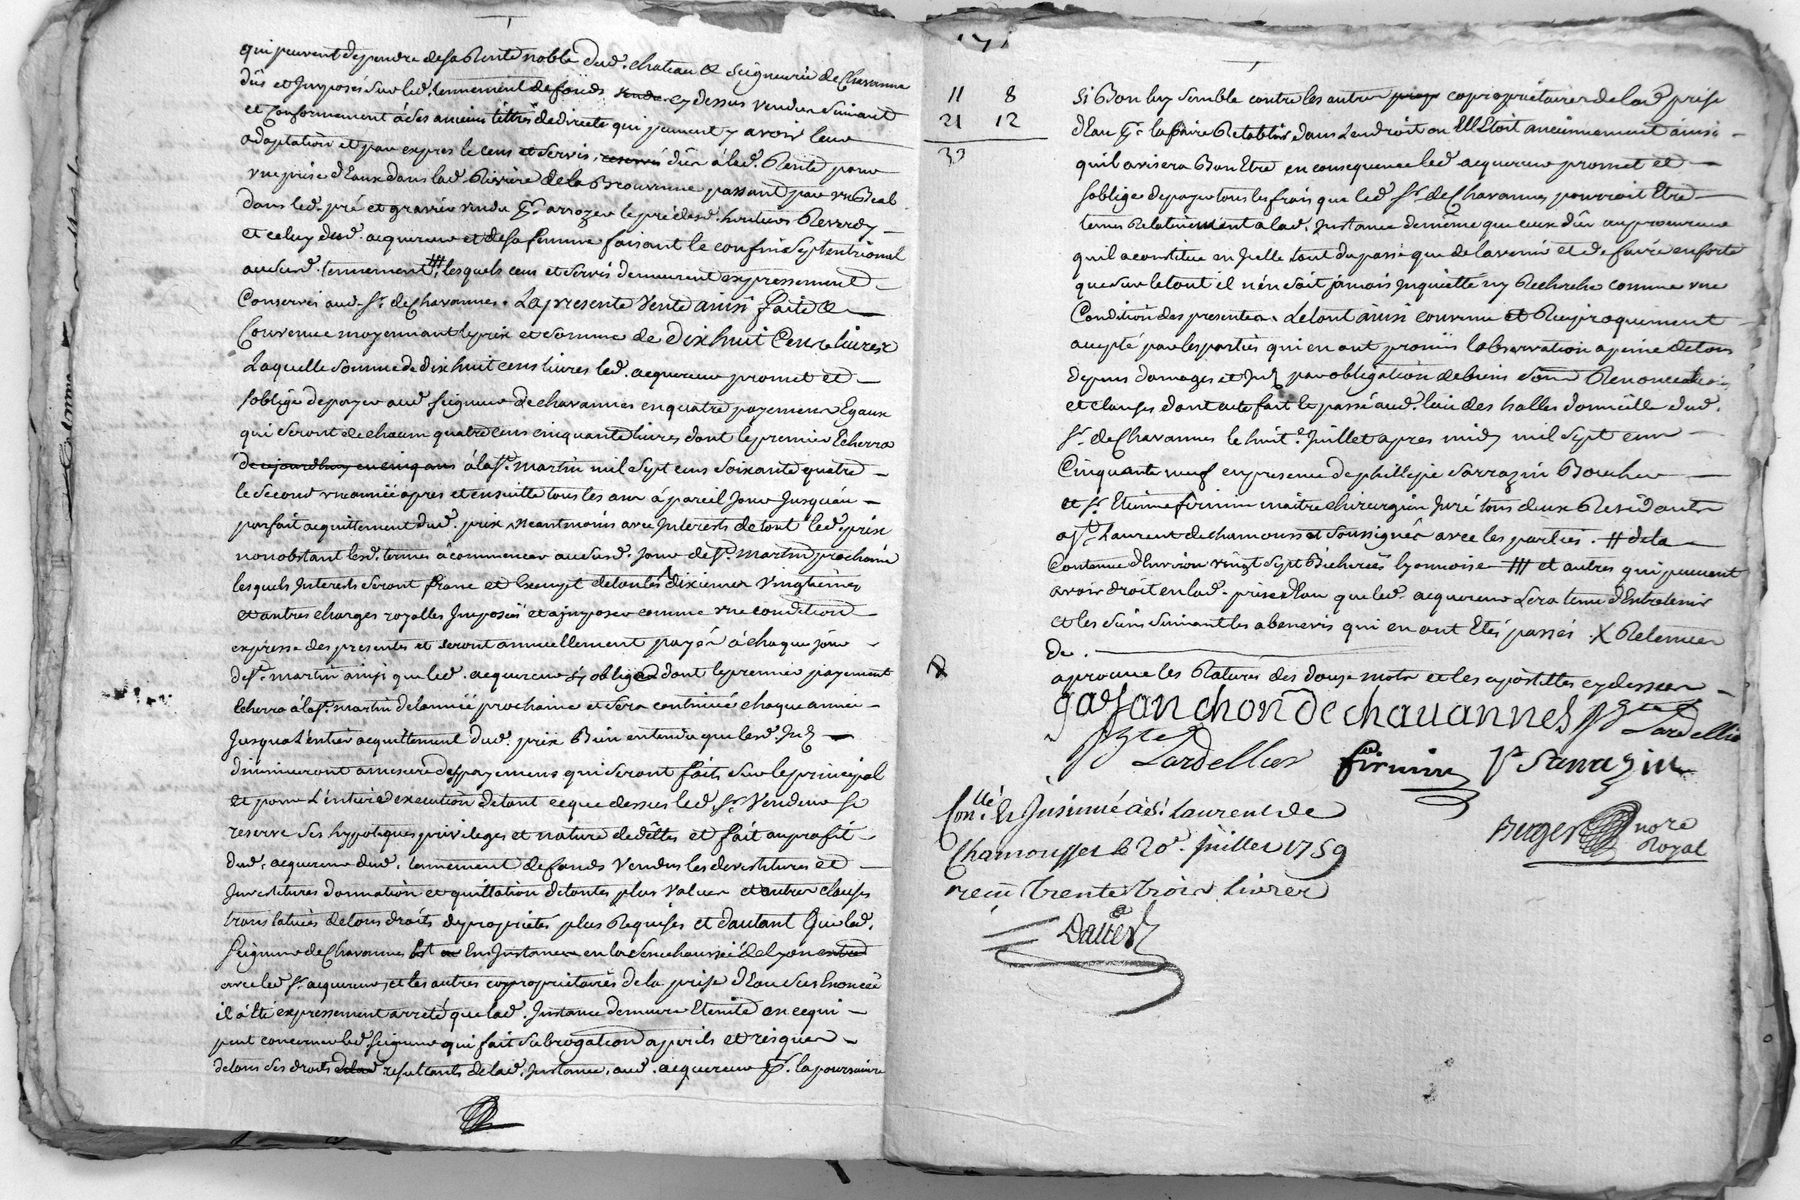 qui peuvent dependre de sa Rente noble dud. chateau & Seigneurie de Chavanne
dûs et Jmposés Sur led. tennement de fonds vendu cy dessus vendu Suivant
et Conformement à Ses anciens tittres de directe qui peuvent y avoir leur
adaptation et par exprès le cens et servis reservé dûs à lad. Rente pour
une prise d'Eaux dans lad. Riviere de la Brevenne passant par un Beal
dans led. pré et gravier vendu pr. arrozer le pré desd. hoirs
et celuy dud. acquereur et de sa femme faisant le confin Septentrional
au Susd. tennement # lesquels cens et servis demeurent expressement
Conservés aud. Sr. de Chavannes. La presente Vente ainsi faite &
Convenue moyennant le prix et Somme de Dix huit Cent livres
Laquelle Somme de Dix huit cens livres led. acquereur promet et
s'oblige de payer aud. Seigneur de chavannes en quatre payemens Egaux
qui Seront de chacun quatre cens cinquante livres dont le premier Echerra
de cejourdhuy en cinq ans à la St. martin mil Sept cens Soixante quatre
le Second une année apres et ensuitte tous les ans à pareil Jour Jusqu'au
parfait acquittement dud. prix neantmoins avec Jnterests de tout led. prix
nonobstant lesd. termes à commencer au Susd. Jour de St. martin prochain
lesquels Jnterests Seront franc et Exempt de toutes dixiemes Vingtiemes
et autres charges royalles Jmposées et a jmposer comme une condition
expresse des presentes et seront annuellement payés à chaque jour
de St. martin ainsi que led. acquereur s'y oblige dont le premier payement
Echerra à la St. martin de l'année prochaine et Sera continué chaque année
Jusqu'a l'entier acquittement dud. prix Bien entendu que lesd. Jnt.
diminueront a mesure des payemens qui Seront faits Sur le principal
Et pour L'entiere execution de tout ce que dessus led. Sr. Vendeur Se
reserve Ses hypoteques privileges et nature de dettes et fait au profit
dud. acquereur dud. tennement de fonds vendus les devestitures et
Jnvestitures donnation et quittation de toutes plus values et autres clauses
translatives de tous droits de proprietés plus Requises et d'autant Que led.
Seigneur de Chavannes Est en Jnstance en la Senechaussée de Lyon
avec led. Sr. acquereur, et les autres coproprietaires de la prise d'Eau Sus Enoncée
il a Eté expressement arreté que lad. Jnstance demeure Eteinte en ce qui
peut concerner led. Seigneur qui fait Subrogation a perils et risques
de tous Ses droits resultants de lad. Jnstance, aud. acquereur pr. la poursuivre
11 8
21 12
33
Si Bon luy Semble contre les autres coproprietaires de lad. prise
d'Eau pr. la faire Retablir dans L'endroit ou Elle Etoit anciennement ainsi
qu'il avisera Bon Etre en consequence led. acquereur promet et
s'oblige de payer tous les frais que led. Sr. de Chavannes pourroit Etre
tenus Relativement a lad. Jnstance de même que ceux dûs au procureur
qu'il a constitué en Jcelle tant du passé que de l'avenir et de faire en sorte
que Sur le tout il n'en Soit jamais Jnquietté ny Recherché comme une
Condition des presentes. Le tout ainsi convenu et Reciproquement
accepté par les parties qui en ont promis l'observation a peine de tous
depens domages et Jnt. par obligation de biens Renonciations
et clauses dont acte fait et passé aud. lieu des halles domicille dud.
Sr. de Chavannes le huit. Juillet apres midy mil Sept cens
Cinquante neuf en presence de phillippe Sarrazin Boucher
et Sr. Etienne firmin maitre chirurgien Juré tous deux Residants
a St. Laurent de chamousset Soussignés avec les parties. # de la
Contenue d'Environ vingt Sept Bicherées lyonnoise # et autres qui peuvent
avoir droit en lad. prise d'Eau que led. acquereur Sera tenu d'Entretenir
et les Siens Suivant les abenevis qui en ont Etés passés. X
de.
approuve les Ratures des douze mots et les apostilles cy dessus
gaspanchon de chavannes Lardellier
Lardellier firmin Sarrazin
Conllé. Et Jnsinué à St. Laurent de
Chamousset le 20e. Juillet 1759
reçu trente trois livres
Berger nore
Royal